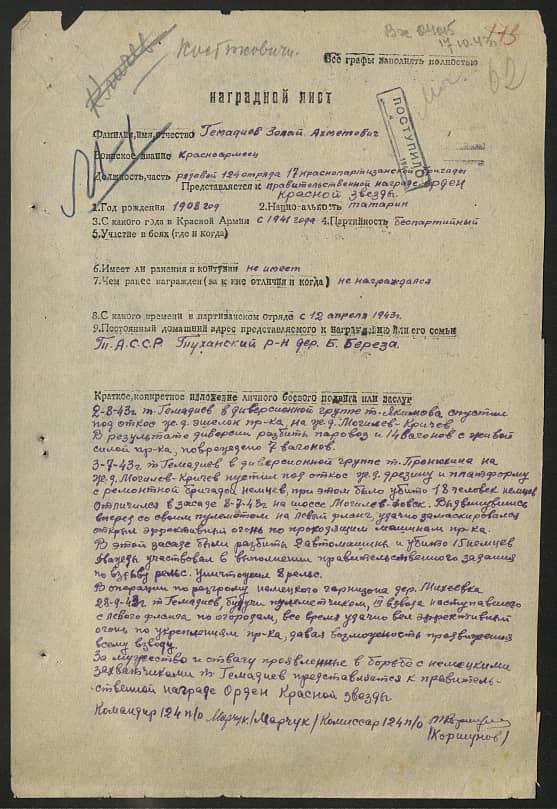 Костюкович.
Вх 04015
17.10.43г.
113
62
Все графы заполнять полностью
НАГРАДНОЙ ЛИСТ
ПОСТУПИЛО
Фамилия, имя, отчество Гемадиев Золай Ахметович
Воинское звание Красноармеец
Должность, часть рядовой 124 отряда 17 Краснопартизанской бригады
Представляется к правительственной награде орден
Красной звезды.
1.Год рождения 1908 год 2.Национальность татарин
3.С какого года в Красной Армии с 1941 года 4.Партийность Беспартийный
5.Участие в боях (где и когда)
6.Имеет ли ранения и контузии не имеет
7.Чем ранее награжден (за какие отличия и когда) не награждался
8.С какого времени в партизанском отряде с 12 апреля 1943г.
9.Постоянный домашний адрес представляемого к награждению или его семьи
Т.А.С.С.Р. Туханский р-н дер. Б. Береза.
Краткое, конкретное изложение личного боевого подвига или заслуг
2-8-43г т. Гемадиев в диверсионной группе т. Якимова спустил
под откос ж.д. эшелон пр-ка, на ж.д. Могилев-Кричев
В результате диверсии разбиты паровоз и 14 вагонов с живой
силой пр-ка, повреждено 7 вагонов.
3-7-43г т Гемадиев в диверсионной группе т. Пронюкина на
ж.д. Могилев-Кричев пустил под откос ж.д. дрезину и платформу
с ремонтной бригадой немцев, при этом было убито 18 человек немцев
Отличился в засаде 8-7-43г на шоссе Могилев-Довск. Выдвинувшись
вперед со своим пулеметом на левый фланг, удачно замаскировался
открыл эффективный огонь по проходящим машинам пр-ка.
В этой засаде были разбиты 2 автомашины и убито 15 немцев
Дважды участвовал в выполнении правительственного задания
по взрыву рельс. Уничтожил 8 рельс.
В операции по разгрому немецкого гарнизона дер. Михеевка
28-9-43г т Гемадиев, будучи пулеметчиком, III взвода наступавшего
с левого фланга по огородам, все время удачно вел эффективный
огонь по укреплениям пр-ка, давал возможность продвижения
всему взводу.
За мужество и отвагу проявленные в борьбе с немецкими
захватчиками т Гемадиев представляется к правитель-
ственной награде Орден Красной звезды
Командир 124 п/о Марчук /Марчук/ Комиссар 124 п/о
/Коршунов/